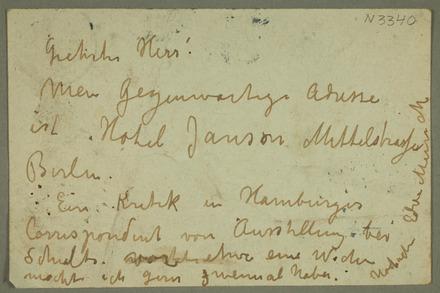 N 3340
Geehrter Herr!
Mein Gegenwärtige Adresse
ist Hotel Janson Mittelstrasse
Berlin.
Ein Kritik in Hamburgis
Correspondent von Ausstellung bei
Schulte etwa eine Woche
möchte ich gern zweimal haben.
Edvard Munch